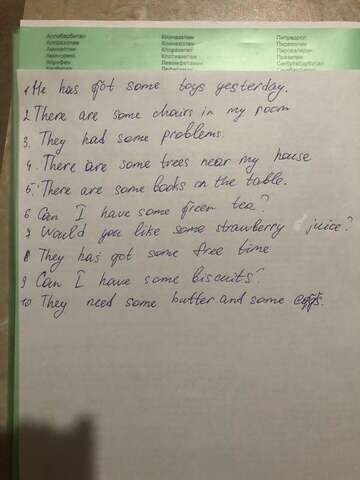 Аллобарбитал Клоназепам Пипрадрол
Алпразолам Клоразепат
Клотиазепам Празепам
1 He has got some toys yesterday.
2. There are some chairs in my room
3. They had some problems.
4. There are some trees near my house
5. There are some books on the table.
6 Can I have some green tea?
7 Would you like some strawberry juice?
8 They has got some free time
9 Can I have some biscuits?
10 They need some butter and some eggs.